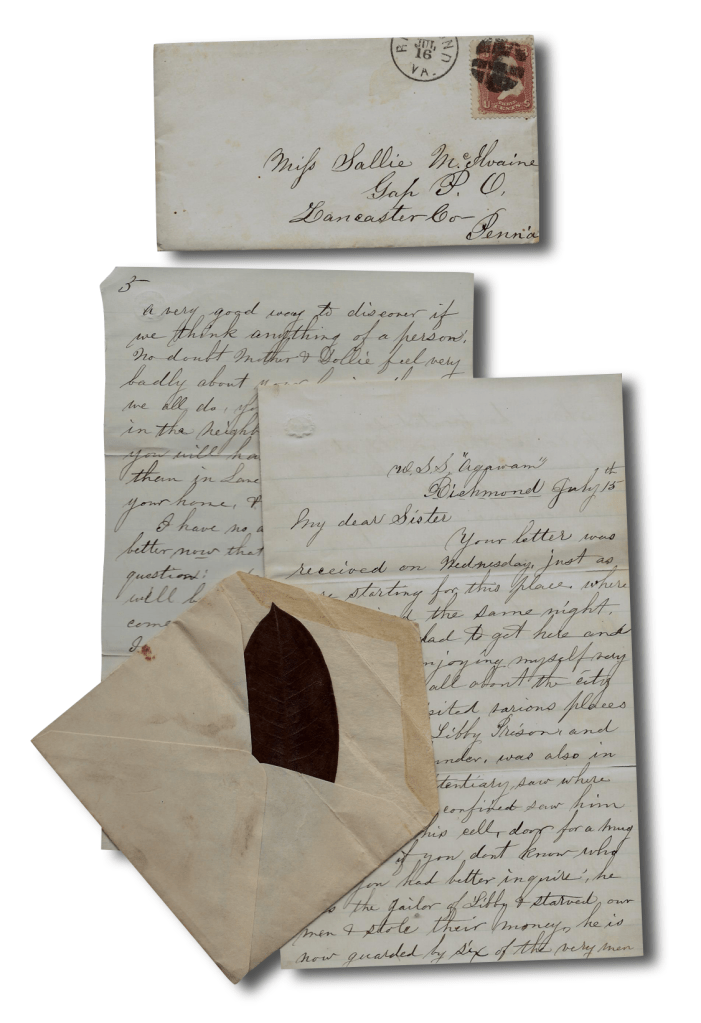 JUL
16
VA.
U S
Miss Sallie McIlvaine
Gap P. O,
Lancaster Co
Penn'a
5
a very good way to discover if
we think anything of a person,
No doubt Mother & Sollie feel very
badly about
we all do,
in the neighb
you will ha
them in Lan
your home, &
I have no a
better now that
question!
will b
come
U.S.S. "Agawam"
Richmond July 15th
My dear Sister
Your letter was
received on Wednesday, just as
starting for this place where
the same night,
had to get here and
njoying myself very
all about the city
isited various places
Libby Prison, and
under, was also in
tentiary saw where
confined saw him
his cell door for a mug
if you dont know who
you had better inquire, he
the jailor of Libby & starved our
men & stole their money, he is
now guarded by six of the very men